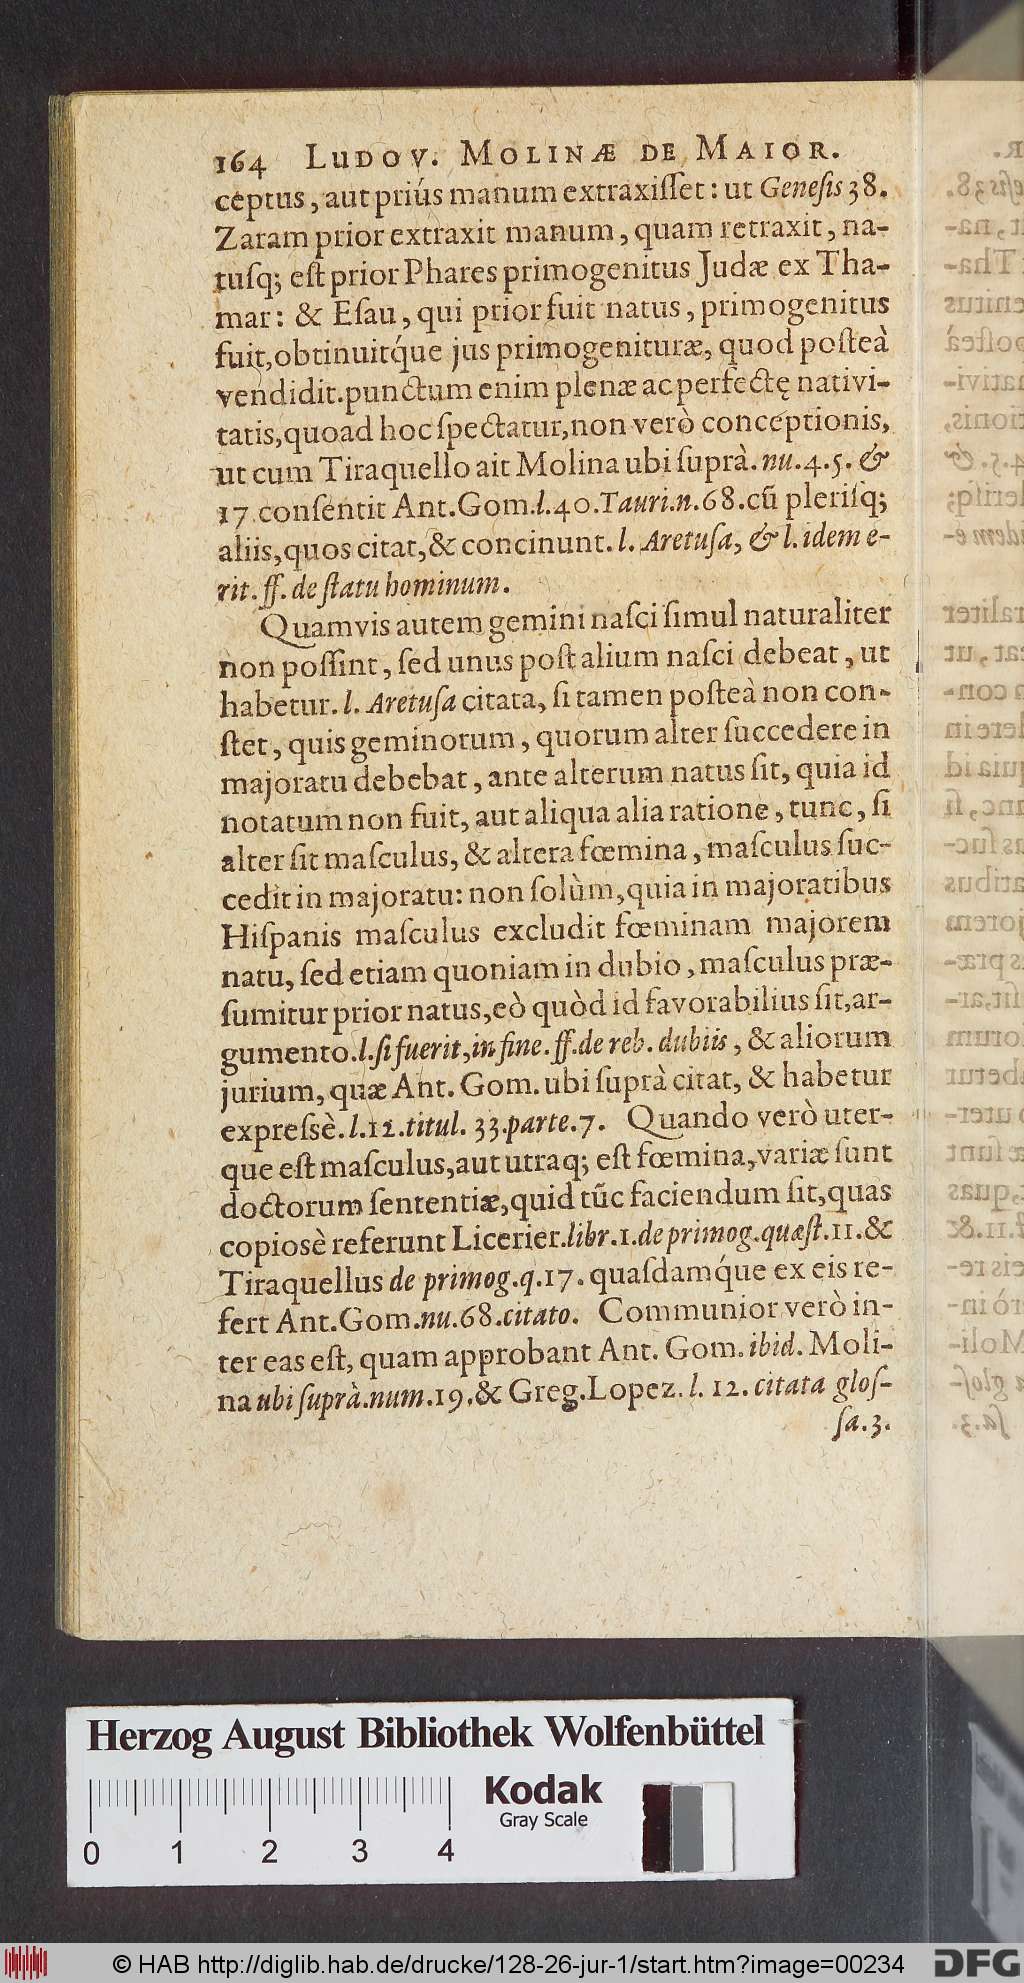 164 LUDOV. MOLINÆ DE MAIOR.
ceptus, aut priús manum extraxiſſet: ut Geneſis 38.
Zaram prior extraxit manum, quam retraxit, na-
tuſq; eſt prior Phares primogenitus Judæ ex Tha-
mar: & Eſau, qui prior fuit natus, primogenitus
fuit, obtinuitq́ue jus primogenituræ, quod poſteà
vendidit. punctum enim plenæ ac perfectę nativi-
tatis, quoad hoc ſpectatur, non verò conceptionis,
ut cum Tiraquello ait Molina ubi ſuprà. nu. 4. 5. &
17 conſentit Ant. Gom. l. 40. Tauri. n. 68. cũ pleriſq;
aliis, quos citat, & concinunt. l. Aretuſa, & l. idem e-
rit. ff. de ſtatu hominum.
Quamvis autem gemini naſci ſimul naturaliter
non poſſint, ſed unus poſt alium naſci debeat, ut
habetur. l. Aretuſa citata, ſi tamen poſteà non con-
ſtet, quis geminorum, quorum alter ſuccedere in
majoratu debebat, ante alterum natus ſit, quia id
notatum non fuit, aut aliqua alia ratione, tunc, ſi
alter ſit maſculus, & altera fœmina, maſculus ſuc-
cedit in majoratu: non ſolùm, quia in majoratibus
Hiſpanis maſculus excludit fœminam majorem
natu, ſed etiam quoniam in dubio, maſculus præ-
ſumitur prior natus, eò quòd id favorabilius ſit, ar-
gumento. l. ſi fuerit, in fine. ff. de reb. dubiis, & aliorum
jurium, quæ Ant. Gom. ubi ſuprà citat, & habetur
expreſsè. l. 12. titul. 33. parte. 7. Quando verò uter-
que eſt maſculus, aut utraq; eſt fœmina, variæ ſunt
doctorum ſententiæ, quid tũc faciendum ſit, quas
copiosè referunt Licerier. libr. 1. de primog. quæſt. 11. &
Tiraquellus de primog. q. 17. quaſdamq́ue ex eis re-
fert Ant. Gom. nu. 68. citato. Communior verò in-
ter eas eſt, quam approbant Ant. Gom. ibid. Moli-
na ubi ſuprà. num. 19. & Greg. Lopez. l. 12. citata gloſ-
ſa. 3.
Herzog August Bibliothek Wolfenbüttel
Kodak
Gray Scale
0 1 2 3 4
© HAB http://diglib.hab.de/drucke/128-26-jur-1/start.htm?image=00234
DFG